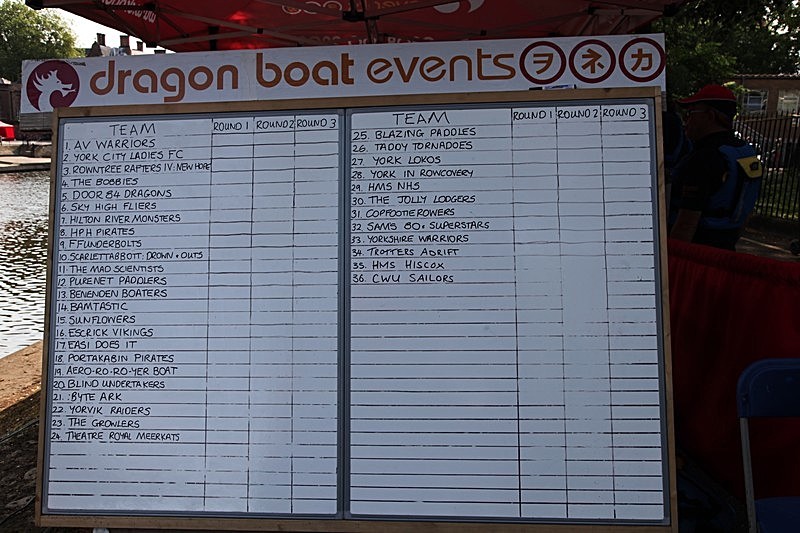 dragon boat events ヲ ネ カ
TEAM ROUND 1 ROUND 2 ROUND 3
1. AV WARRIORS
2. YORK CITY LADIES FC
3. ROWNTREE RAPTERS IV: NEW HOPE
4. THE BOBBIES
5. DOOR 84 DRAGONS
6. SKY HIGH FLIERS
7. HILTON RIVER MONSTERS
8. HPH PIRATES
9. FFUNDERBOLTS
10. SCARLETTABBOTT: DROWN + OUTS
11. THE MAD SCIENTISTS
12. PURENET PADDLERS
13. BENENDEN BOATERS
14. BAMTASTIC
15. SUNFLOWERS
16. ESCRICK VIKINGS
17. EASI DOES IT
18. PORTAKABIN PIRATES
19. AERO-RO-RO-YER BOAT
20. BLIND UNDERTAKERS
21. :BYTE ARK
22. YORVIK RAIDERS
23. THE GROWLERS
24. THEATRE ROYAL MEERKATS
TEAM ROUND 1 ROUND 2 ROUND 3
25. BLAZING PADDLES
26. TADDY TORNADOES
27. YORK LOKOS
28. YORK IN ROWCOVERY
29. HMS NHS
30. THE JOLLY LODGERS
31. COPFOOTIEROWERS
32 SAM'S 80s SUPERSTARS
33. YORKSHIRE WARRIORS
34. TROTTERS ADRIFT
35. HMS HISCOX
36. CWU SAILORS